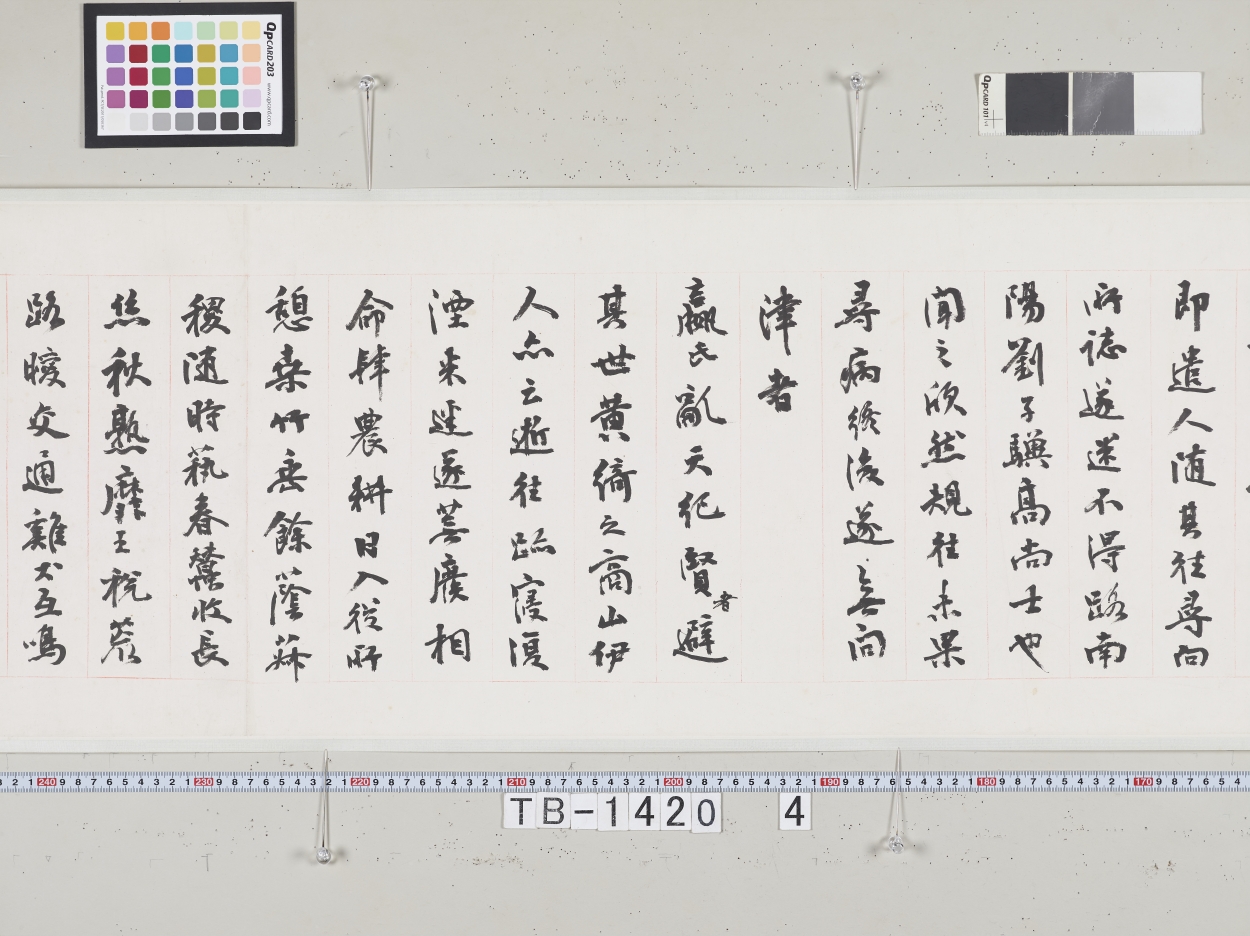 即遣人随其往尋向
所誌遂迷不得路南
陽劉子驥髙尚士也
聞之欣然規往未果
尋病終後遂無問
津者
嬴氏亂天紀賢者避
其世黄綺之商山伊
人亦云逝往跡寖復
湮来逕遂蕪廢相
命肆農耕日入從所
憩桑竹垂餘蔭菽
稷随時藝春蠶收長
絲秋熟靡王稅荒
路曖交通雞犬互鳴
QpCARD 203
www.qpcard.com
QpCARD 101
TB-1420 4